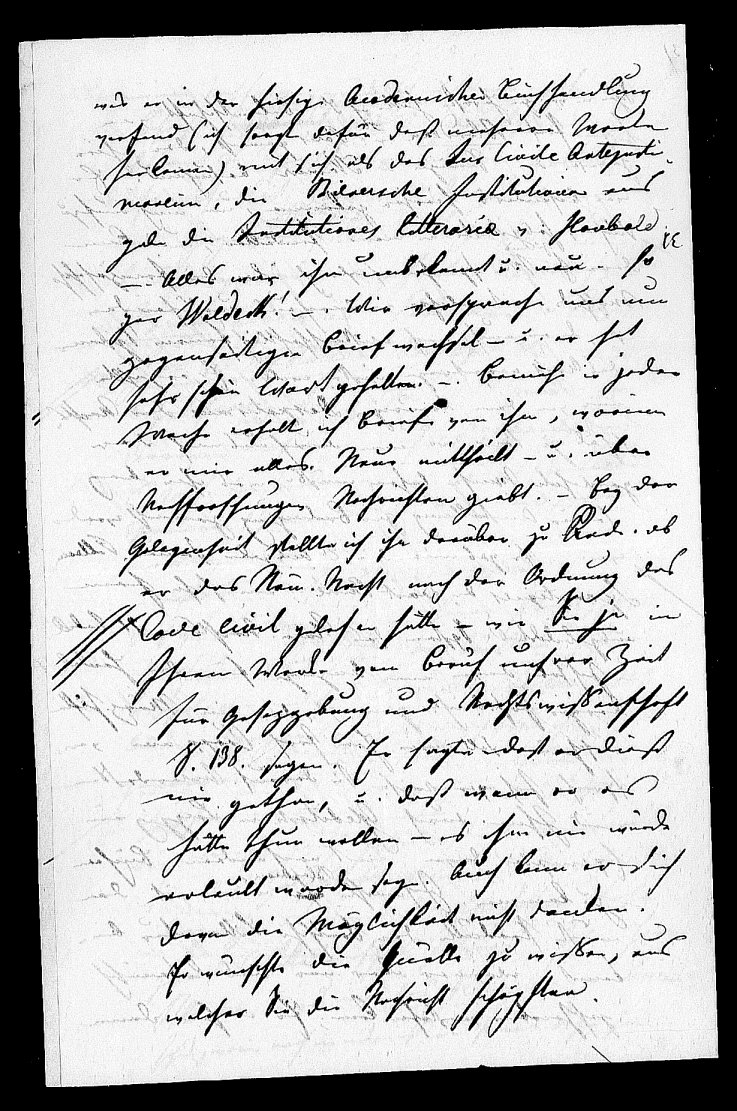 was er in der hiesige Academischen Buchhandlung
vorfand (ich sorgte dafür daß mehrere Werke
herkamen) mit sich als das Jus Civile Antejusti-
nianeum, die Bienersche Institutionen aus
gabe die Institutiones litterariae v. Haubold
— Alles war ihm unbekannt u. neu. so
gar Waldeck! —. Wir versprachen uns nun
gegenseitigen Briefwechsel — u. er hat
sehr schön Wort gehalten. —. Beinahe in jeder
Woche erhalt ich Briefe von ihm, worinn
er mir alles Neue mittheilt — u. über
Nachrichten giebt. — Bey der
Gelegenheit stellte ich ihn darüber zu Rede. ob
er das Röm. Recht nach der Ordnung des
Code civil gelesen hätte — wie Sie ja in
Ihrem Werke vom Beruf unsrer Zeit
für Gesezgebung und Rechtswissenschaft
S. 138. sagen. Er sagte daß er dieß
nie gethan, u. daß wenn er es
hätte thun wollen — es ihm nie würde
erlaubt worden seyn. Auch kann er sich
davon die Möglichkeit nicht denken.
Er wünschte die Quelle zu wissen, aus
welcher Sie die Nachricht schöpften.